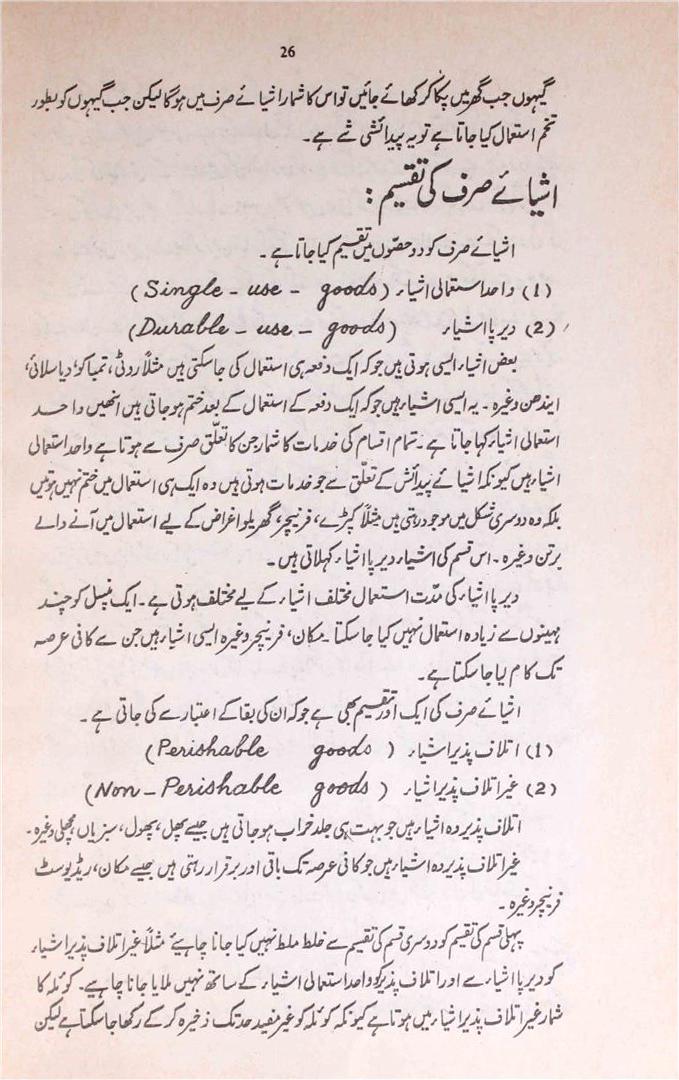 26
گیہوں جب گھر میں پکا کر کھائے جائیں تو اس کا شمار اشیائے صرف میں ہوگا لیکن جب گیہوں کو بطور
تخم استعمال کیا جاتا ہے تو یہ پیدائشی شے ہے۔
اشیائے صرف کی تقسیم :
اشیائے صرف کو دو حصّوں میں تقسیم کیا جاتا ہے۔
(1) واحد استعمالی اشیاء (Single - use - goods)
(2) دیرپا اشیاء (Durable - use - goods)
بعض اشیاء ایسی ہوتی ہیں جو کہ ایک دفعہ ہی استعمال کی جاسکتی ہیں مثلاً روٹی، تمباکو، دیا سلائی،
ایندھن وغیرہ۔ یہ ایسی اشیاء ہیں جو کہ ایک دفعہ کے استعمال کے بعد ختم ہوجاتی ہیں انھیں واحد
استعمالی اشیاء کہا جاتا ہے۔ تمام اقسام کی خدمات کا شمار جن کا تعلّق صرف سے ہوتا ہے واحد استعمالی
اشیاء ہیں کیونکہ اشیائے پیدائش کے تعلّق سے جو خدمات ہوتی ہیں وہ ایک ہی استعمال میں ختم نہیں ہوتیں
بلکہ وہ دوسری شکل میں موجود رہتی ہیں مثلاً کپڑے، فرنیچر، گھریلو اغراض کے لیے استعمال میں آنے والے
برتن وغیرہ۔ اس قسم کی اشیاء دیرپا اشیاء کہلاتی ہیں۔
دیرپا اشیاء کی مدّت استعمال مختلف اشیاء کے لیے مختلف ہوتی ہے۔ ایک پنسل کو چند
مہینوں سے زیادہ استعمال نہیں کیا جاسکتا۔ مکان، فرنیچر وغیرہ ایسی اشیاء ہیں جن سے کافی عرصہ
تک کام لیا جاسکتا ہے۔
اشیائے صرف کی ایک اور تقسیم بھی ہے جو کہ ان کی بقا کے اعتبار سے کی جاتی ہے۔
(1) اتلاف پذیر اشیاء (Perishable goods)
(2) غیر اتلاف پذیر اشیاء (Non - Perishable goods)
اتلاف پذیر وہ اشیاء ہیں جو بہت ہی جلد خراب ہوجاتی ہیں جیسے پھل، پھول، سبزیاں، مچھلی وغیرہ۔
غیر اتلاف پذیر وہ اشیاء ہیں جو کافی عرصہ تک باقی اور برقرار رہتی ہیں جیسے مکان، ریڈیو سٹ
فرنیچر وغیرہ۔
پہلی قسم کی تقسیم کو دوسری قسم کی تقسیم سے خلط ملط نہیں کیا جانا چاہیئے مثلاً غیر اتلاف پذیر اشیاء
کو دیرپا اشیاء سے اور اتلاف پذیر کو واحد استعمالی اشیاء کے ساتھ نہیں ملایا جانا چاہیے۔ کوئلہ کا
شمار غیر اتلاف پذیر اشیاء میں ہوتا ہے کیونکہ کوئلہ کو غیر مفید حد تک ذخیرہ کرکے رکھا جاسکتا ہے لیکن